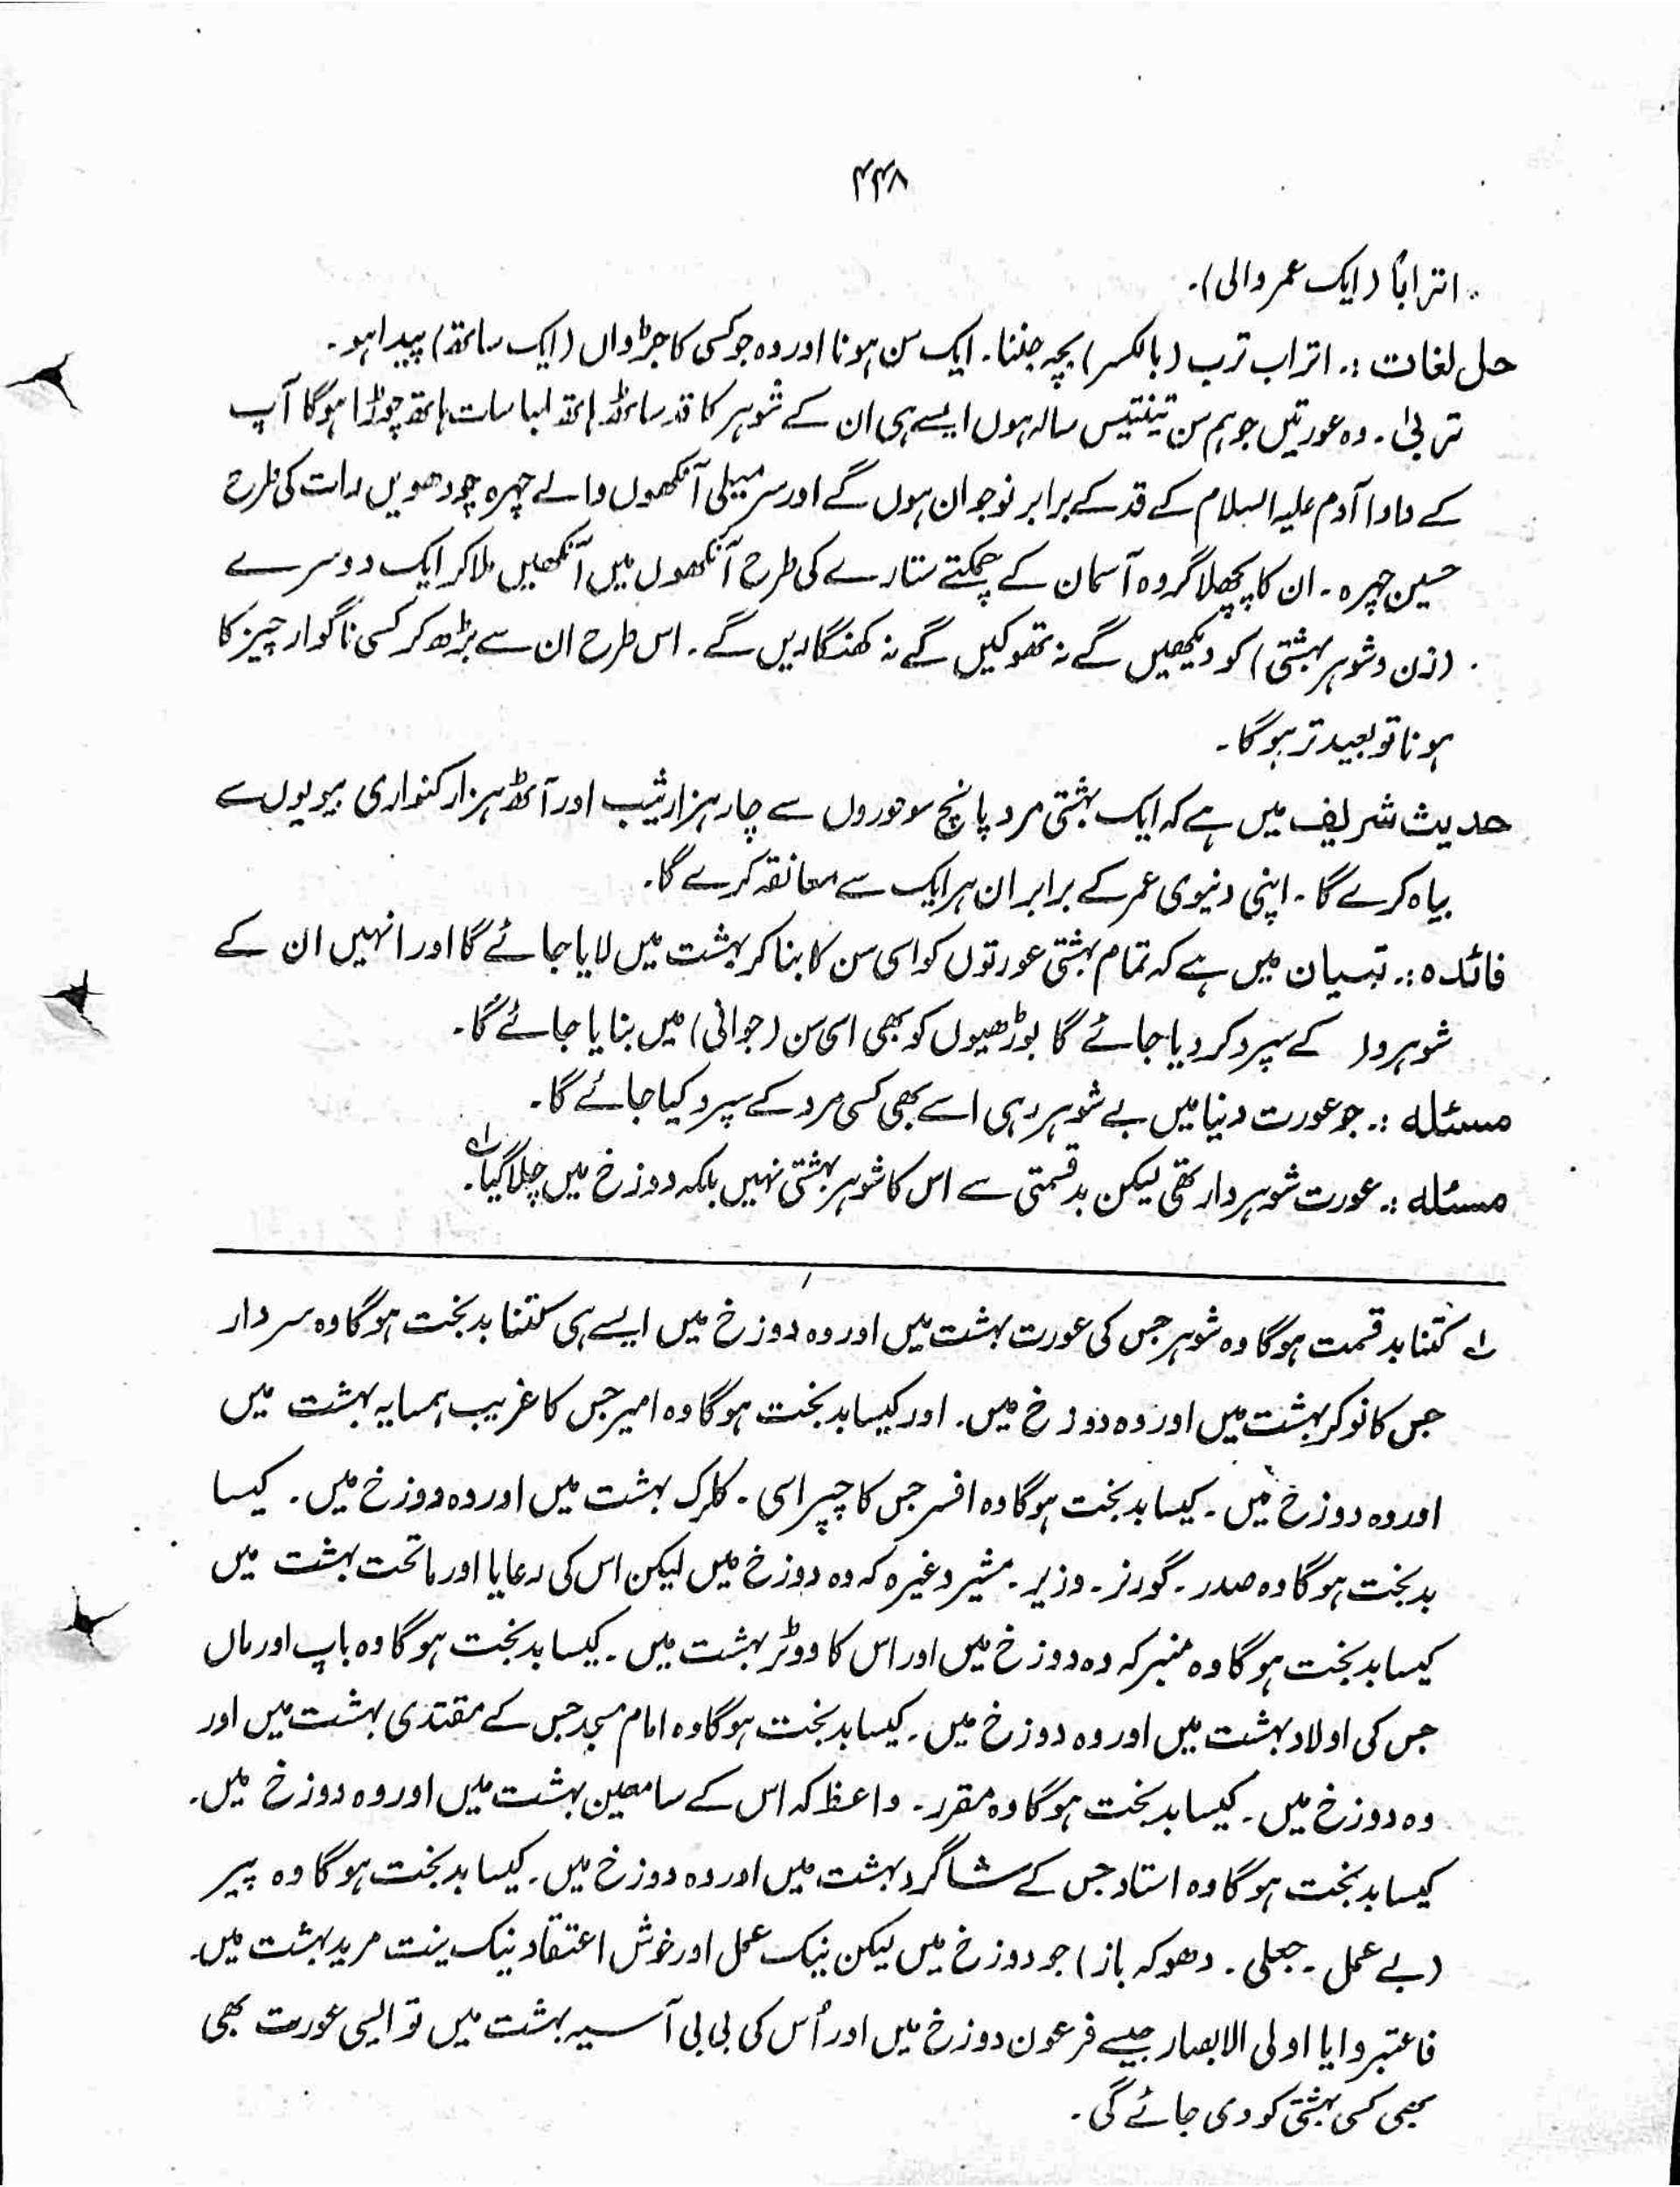 ۴۴۸
اتراباً (ایک عمر والی)۔
حل لغات :۔ اتراب ترب (بالکسر) بچہ جننا۔ ایک سن ہونا اور وہ جو کسی کا جڑواں (ایک ساتھ) پیدا ہو۔
تربیٰ۔ وہ عورتیں جو ہم سن تینتیس سالہ ہوں ایسے ہی ان کے شوہر کا قد ساٹھ ہاتھ لمبا سات ہاتھ چوڑا ہوگا آپ
کے دادا آدم علیہ السلام کے قد کے برابر نوجوان ہوں گے اور سرمیلی آنکھوں والے چہرہ چودھویں رات کی طرح
حسین چہرہ۔ ان کا پچھلا گروہ آسمان کے چمکتے ستارے کی طرح آنکھوں میں آنکھیں ملا کر ایک دوسرے
(زن و شوہر بہشتی) کو دیکھیں گے نہ تھوکیں گے نہ کھنگاریں گے۔ اس طرح ان سے بڑھ کر کسی ناگوار چیز کا
ہونا تو بعید تر ہوگا۔
حدیث شریف میں ہے کہ ایک بہشتی مرد پانچ سو حوروں سے چار ہزار ثیب اور آٹھ ہزار کنواری بیویوں سے
بیاہ کرے گا۔ اپنی دنیوی عمر کے برابر ان ہر ایک سے معانقہ کرے گا۔
فائدہ :۔ تبیان میں ہے کہ تمام بہشتی عورتوں کو اسی سن کا بنا کر بہشت میں لایا جائے گا اور انہیں ان کے
شوہروں کے سپرد کر دیا جائے گا بوڑھیوں کو بھی اسی سن (جوانی) میں بنایا جائے گا۔
مسئلہ :۔ جو عورت دنیا میں بے شوہر رہی اسے بھی کسی مرد کے سپرد کیا جائے گا۔
مسئلہ :۔ عورت شوہر دار تھی لیکن بدقسمتی سے اس کا شوہر بہشتی نہیں بلکہ دوزخ میں چلا گیا ؎۱۔
؎۱ کتنا بدقسمت ہوگا وہ شوہر جس کی عورت بہشت میں اور وہ دوزخ میں ایسے ہی کتنا بدبخت ہوگا وہ سردار
جس کا نوکر بہشت میں اور وہ دوزخ میں۔ اور کیسا بدبخت ہوگا وہ امیر جس کا غریب ہمسایہ بہشت میں
اور وہ دوزخ میں۔ کیسا بدبخت ہوگا وہ افسر جس کا چپراسی۔ کلرک بہشت میں اور وہ دوزخ میں۔ کیسا
بدبخت ہوگا وہ صدر۔ گورنر۔ وزیر۔ مشیر وغیرہ کہ وہ دوزخ میں لیکن اس کی رعایا اور ماتحت بہشت میں
کیسا بدبخت ہوگا وہ ممبر کہ وہ دوزخ میں اور اس کا ووٹر بہشت میں۔ کیسا بدبخت ہوگا وہ باپ اور ماں
جس کی اولاد بہشت میں اور وہ دوزخ میں۔ کیسا بدبخت ہوگا وہ امام مسجد جس کے مقتدی بہشت میں اور
وہ دوزخ میں۔ کیسا بدبخت ہوگا وہ مقرر۔ واعظ کہ اس کے سامعین بہشت میں اور وہ دوزخ میں۔
کیسا بدبخت ہوگا وہ استاد جس کے شاگرد بہشت میں اور وہ دوزخ میں۔ کیسا بدبخت ہوگا وہ پیر
(بے عمل۔ جعلی۔ دھوکہ باز) جو دوزخ میں لیکن نیک عمل اور خوش اعتقاد نیک نیت مرید بہشت میں۔
فاعتبروا یا اولی الابصار جیسے فرعون دوزخ میں اور اُس کی بی بی آسیہ بہشت میں تو ایسی عورت بھی
بھی کسی بہشتی کو دی جائے گی۔